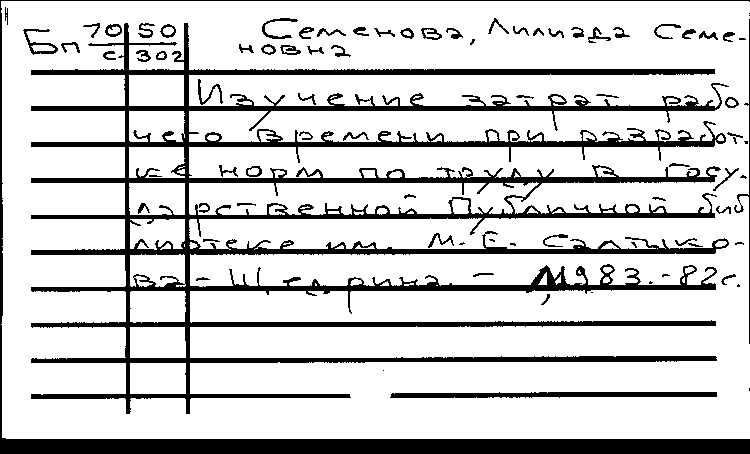 Бп 70 50 Семенова, Лилиада Семе-
с. 302 новна
Изучение затрат рабо-
чего времени при разработ.
ке норм по труду в Госу-
дарственной Публичной биб
лиотеке им. М.Е. Салтыко-
ва-Щедрина. - Л, 1983.-82с.